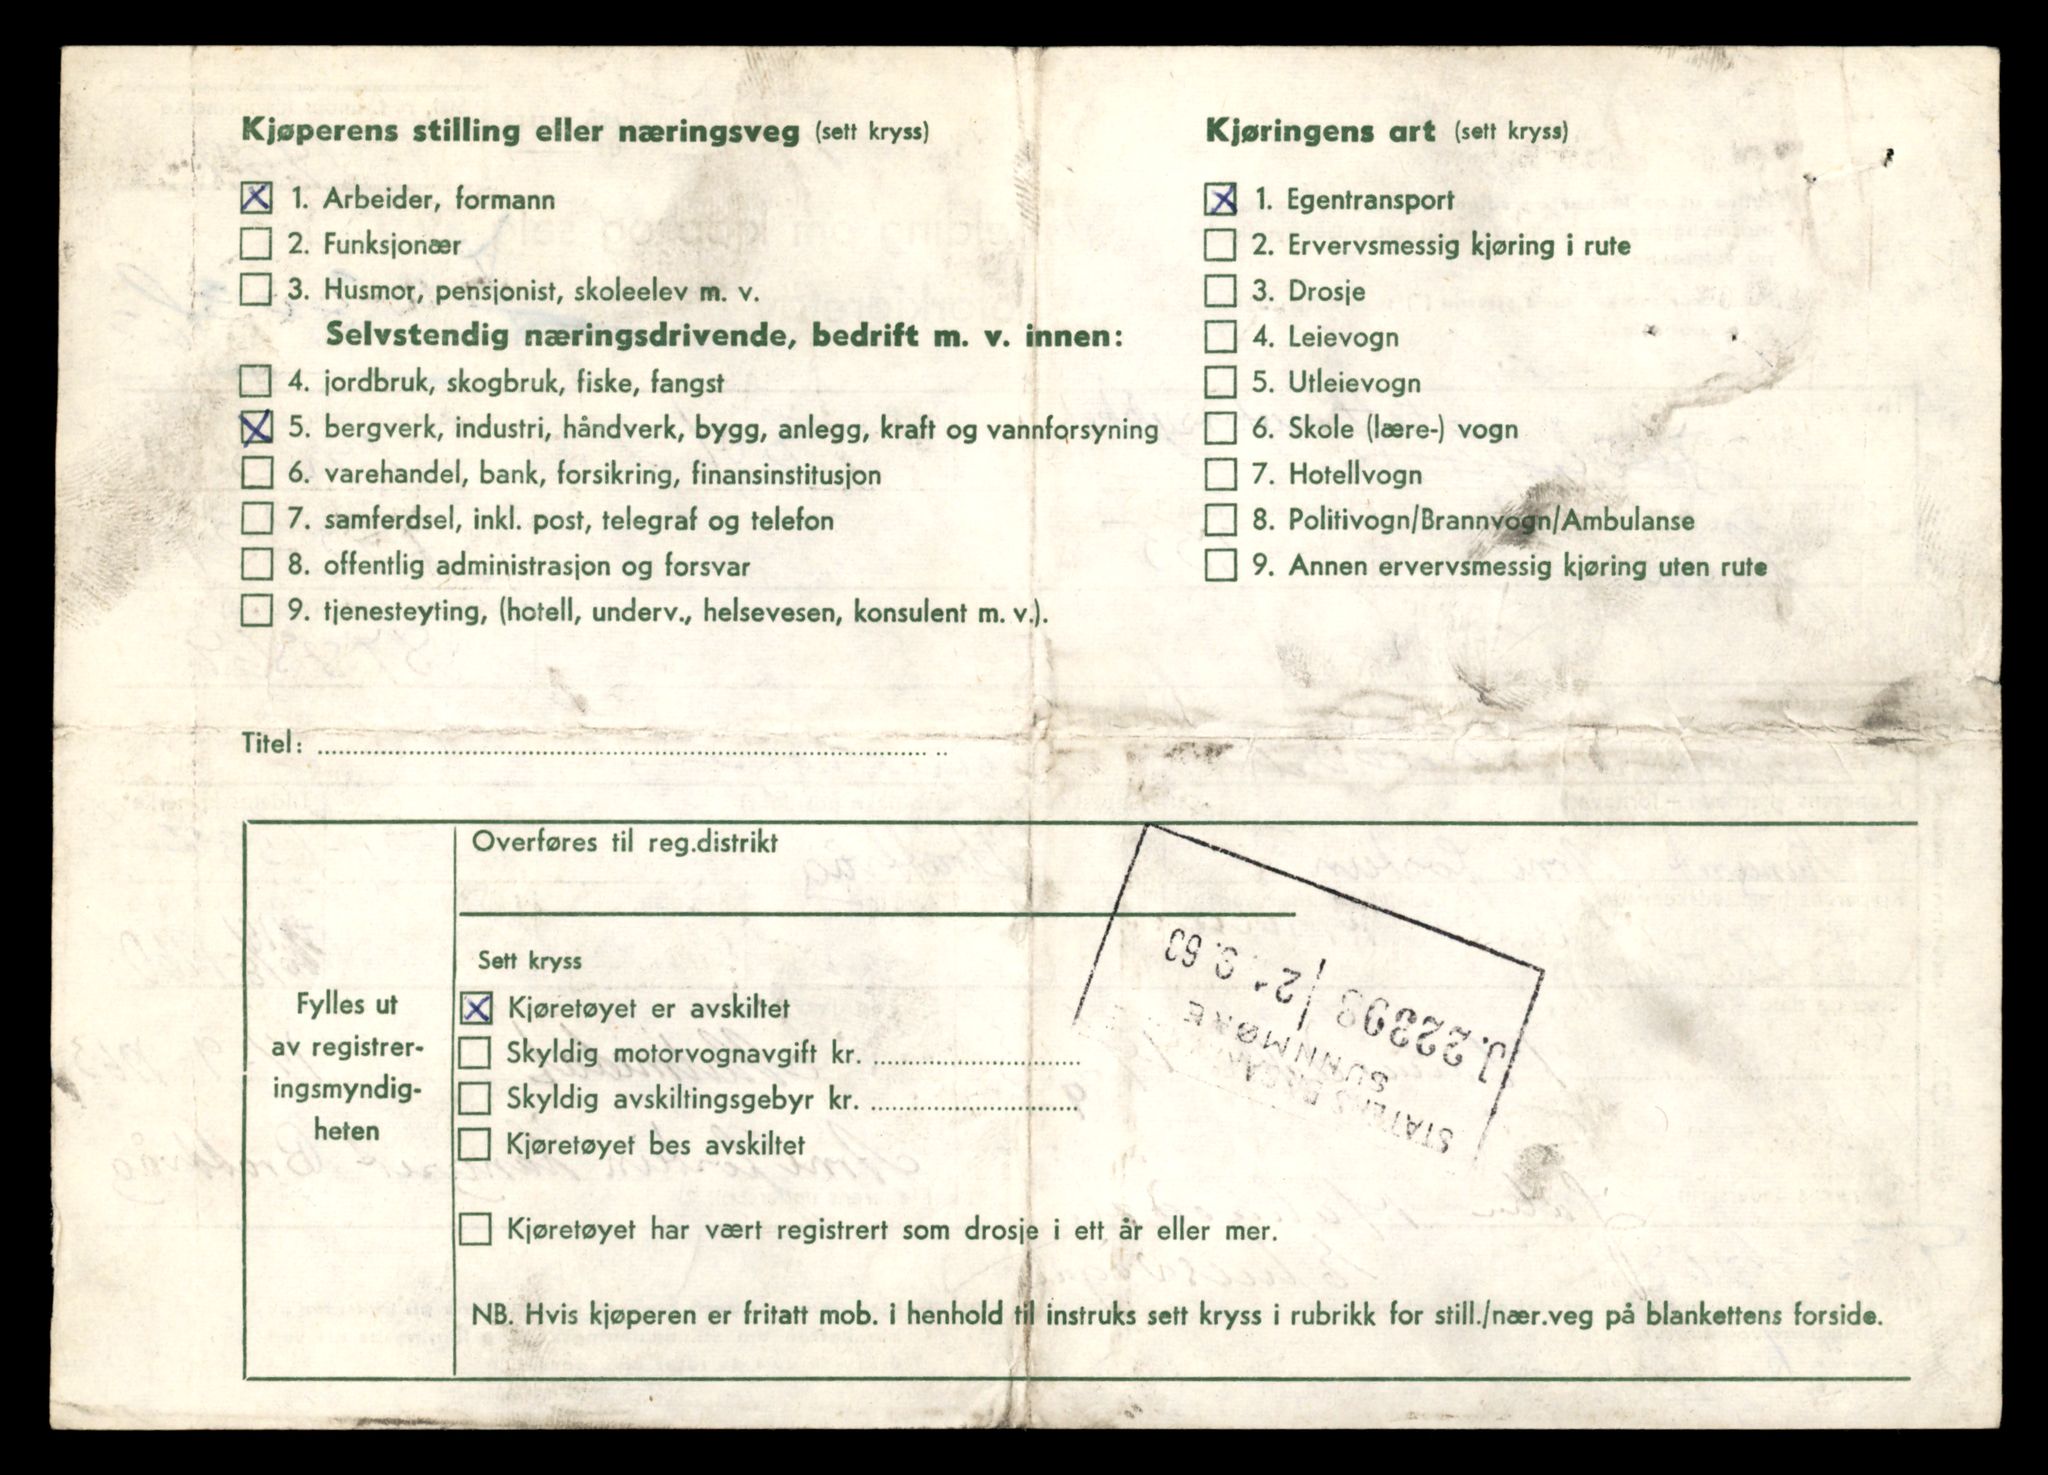 Kjøperens stilling eller næringsveg (sett kryss)
1. Arbeider, formann
2. Funksjonær
3. Husmor, pensjonist, skoleelev m. v.
Selvstendig næringsdrivende, bedrift m. v. innen:
4. jordbruk, skogbruk, fiske, fangst
5. bergverk, industri, håndverk, bygg, anlegg, kraft og vannforsyning
6. varehandel, bank, forsikring, finansinstitusjon
7. samferdsel, inkl. post, telegraf og telefon
8. offentlig administrasjon og forsvar
9. tjenesteyting, (hotell, underv., helsevesen, konsulent m. v.).
Kjøringens art (sett kryss)
1. Egentransport
2. Ervervsmessig kjøring i rute
3. Drosje
4. Leievogn
5. Utleievogn
6. Skole (lære-) vogn
7. Hotellvogn
8. Politivogn/Brannvogn/Ambulanse
9. Annen ervervsmessig kjøring uten rute
Titel:
Fylles ut
av registrer-
ingsmyndig-
heten
Overføres til reg.distrikt
Sett kryss
Kjøretøyet er avskiltet
Skyldig motorvognavgift kr.
Skyldig avskiltingsgebyr kr.
Kjøretøyet bes avskiltet
Kjøretøyet har vært registrert som drosje i ett år eller mer.
NB. Hvis kjøperen er fritatt mob. i henhold til instruks sett kryss i rubrikk for still./nær.veg på blankettens forside.
STATENS
SUNNMØRE